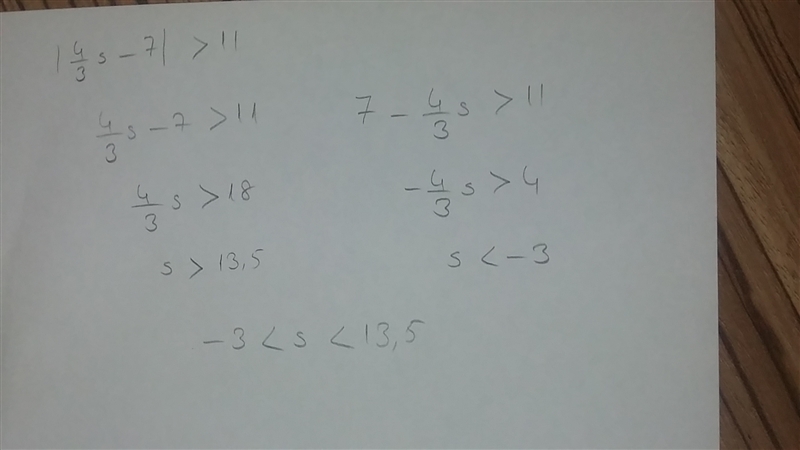 |4/3 s − 7| > 11
4/3 s − 7 > 11
7 − 4/3 s > 11
4/3 s > 18
−4/3 s > 4
s > 13,5
s < −3
−3 < s < 13,5